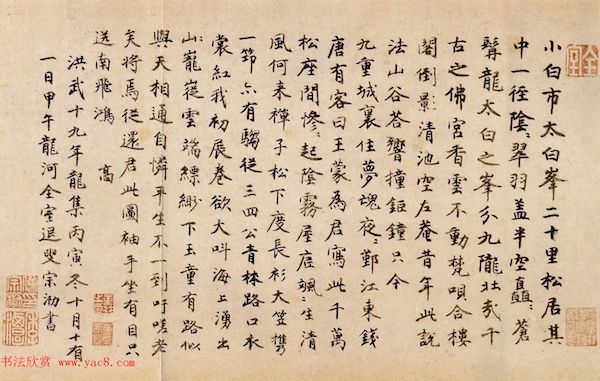 小白市太白峯二十里松居其
中一徑陰〻翠羽盖半空矗〻蒼
髯龍太白之峯分九隴壯哉千
古之佛宮香雲不動梵唄合樓
閣倒影清池空左菴昔年此說
法山谷荅響撞鉅鐘只今
九重城裏住夢魂夜〻鄞江東錢
唐有客曰王蒙為君寫此千萬
松座間慘〻起陰霧屋底颯〻生清
風何來樿子松下度長衫大笠携
一筇亦有騶從三四公青林路口衣
裳紅我初展卷欲大叫海上湧出
山巃嵸雲端縹緲下玉童有路似
與天相通自憐平生不一到吁嗟老
矣將焉從還君此圖袖手坐有目只
送南飛鴻 高
洪武十九年龍集丙寅冬十月十有
一日甲午龍河全室退叟宗泐書
全室
书法欣赏 www.yac8.com